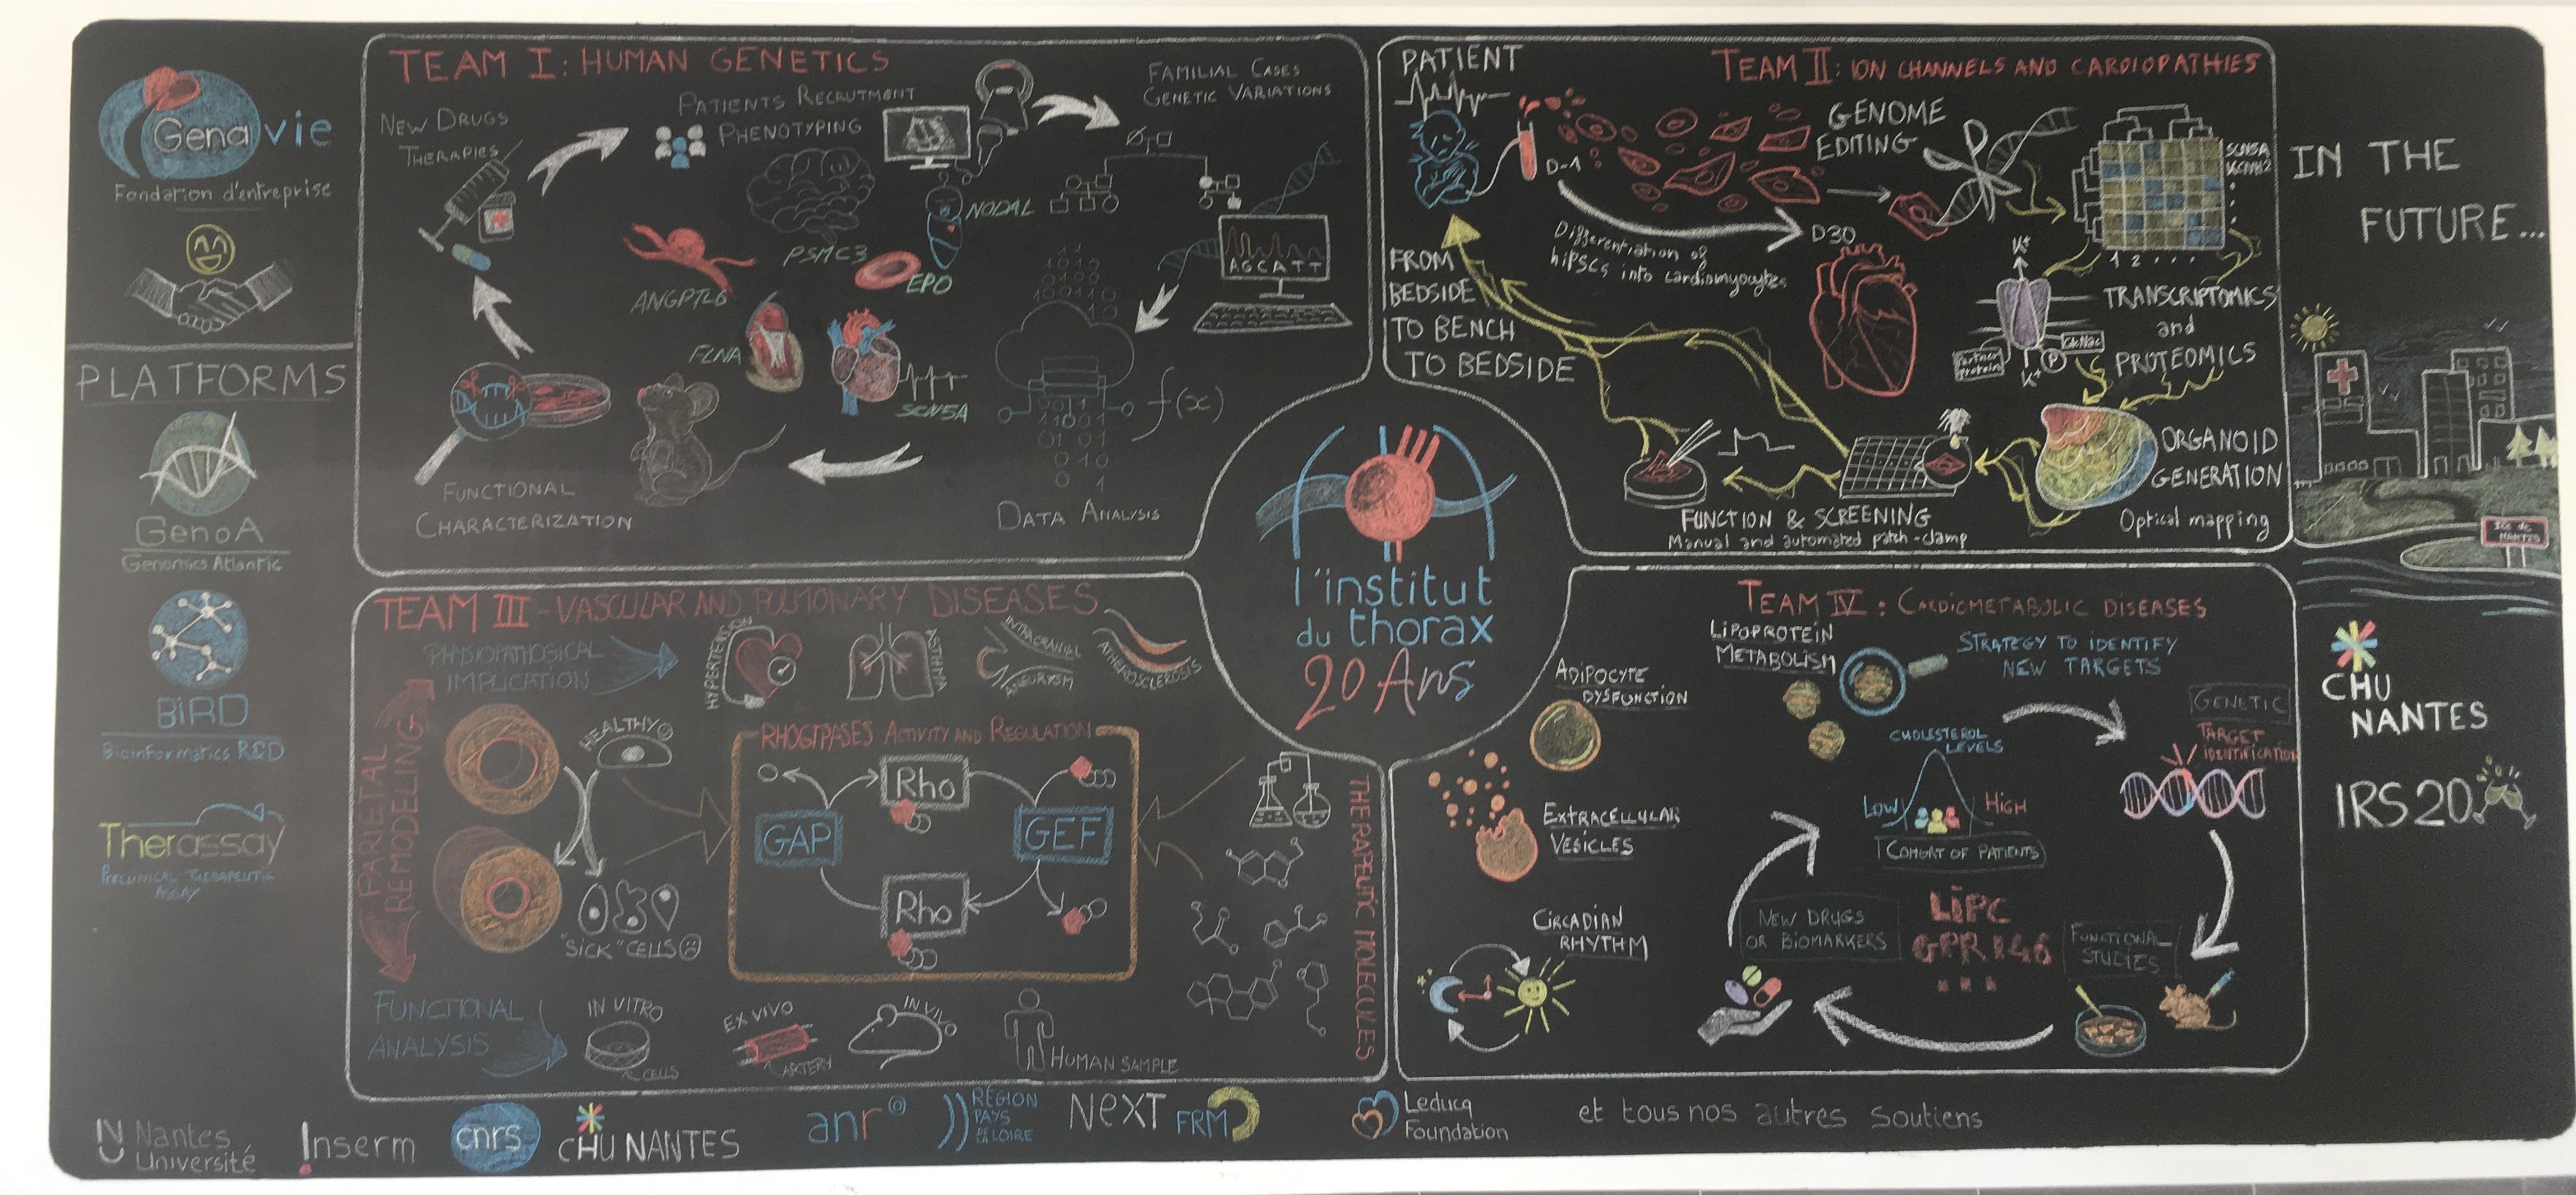 Genavie
Fondation d'entreprise
PLATFORMS
GenoA
Genomics Atlantic
BiRD
Bioinformatics R&D
Therassay
PRECLINICAL THERAPEUTIC
ASSAY
TEAM I: HUMAN GENETICS
NEW DRUGS
THERAPIES
PATIENTS RECRUTMENT
PHENOTYPING
FAMILIAL CASES
GENETIC VARIATIONS
NODAL
PSMC3
EPO
ANGPTL6
FLNA
SCN5A
AGCATT
f(x)
FUNCTIONAL
CHARACTERIZATION
DATA ANALYSIS
PATIENT
TEAM II: ION CHANNELS AND CARDIOPATHIES
D-1
GENOME
EDITING
SCN5A
KCNH2
1 2 . . .
Differentiation of
hiPSCs into cardiomyocytes
D30
FROM
BEDSIDE
TO BENCH
TO BEDSIDE
K+
TRANSCRIPTOMICS
and
PROTEOMICS
Partner
protein
GlcNac
P
K+
ORGANOID
GENERATION
Optical mapping
FUNCTION & SCREENING
Manual and automated patch-clamp
l'institut
du thorax
20 Ans
TEAM III - VASCULAR AND PULMONARY DISEASES
PHYSIOPATHOGICAL
IMPLICATION
HYPERTENSION
ASTHMA
INTRACRANIAL
ANEURYSM
ATHEROSCLEROSIS
PARIETAL
REMODELING
HEALTHY
"SICK" CELLS
RHOGTPASES ACTIVITY AND REGULATION
Rho
GAP
GEF
Rho
THERAPEUTIC MOLECULES
FUNCTIONAL
ANALYSIS
IN VITRO
CELLS
EX VIVO
ARTERY
IN VIVO
HUMAN SAMPLE
TEAM IV : CARDIOMETABOLIC DISEASES
LIPOPROTEIN
METABOLISM
STRATEGY TO IDENTIFY
NEW TARGETS
ADIPOCYTE
DYSFUNCTION
GENETIC
TARGET
IDENTIFICATION
CHOLESTEROL
LEVELS
LOW
HIGH
COHORT OF PATIENTS
EXTRACELLULAR
VESICLES
CIRCADIAN
RHYTHM
NEW DRUGS
OR BIOMARKERS
LIPC
GPR146
...
FUNCTIONAL
STUDIES
IN THE
FUTURE...
ILE DE
NANTES
CHU
NANTES
IRS 20
Nantes
Université
Inserm
cnrs
CHU NANTES
anr
RÉGION
PAYS
DE LA LOIRE
NEXT
FRM
Leducq
Foundation
et tous nos autres soutiens